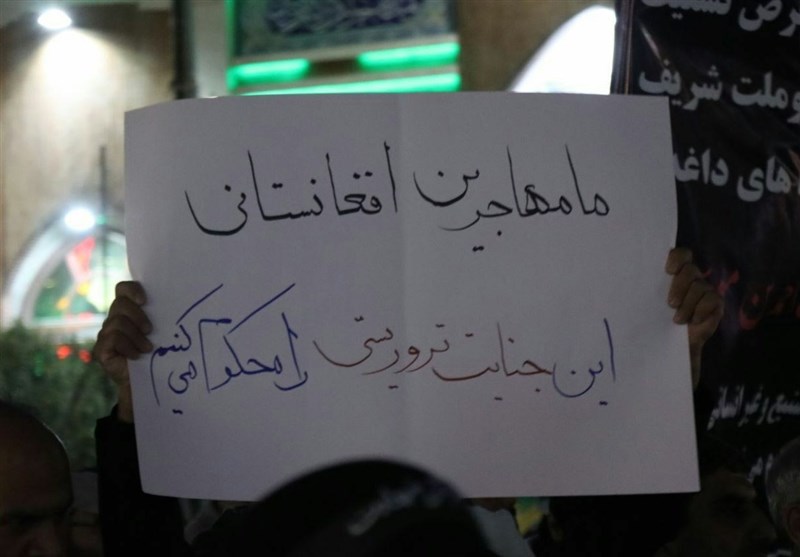 ما مهاجرین افغانستانی
این جنایت تروریستی را محکوم می کنیم
عرض تسلیت
وملت شریف
های داغد
غیر انسانی